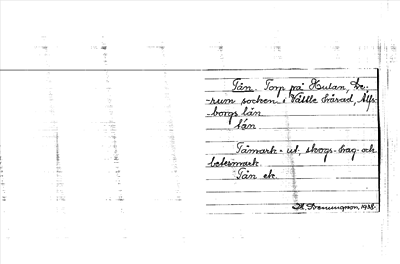 Tån. Torp på Hulan, Le-
-rum socken i Vättle härad, Älfs-
borgs län.
tån
Tåmark = ut, skogs-hag och
betesmark.
Tån etc.
1938.